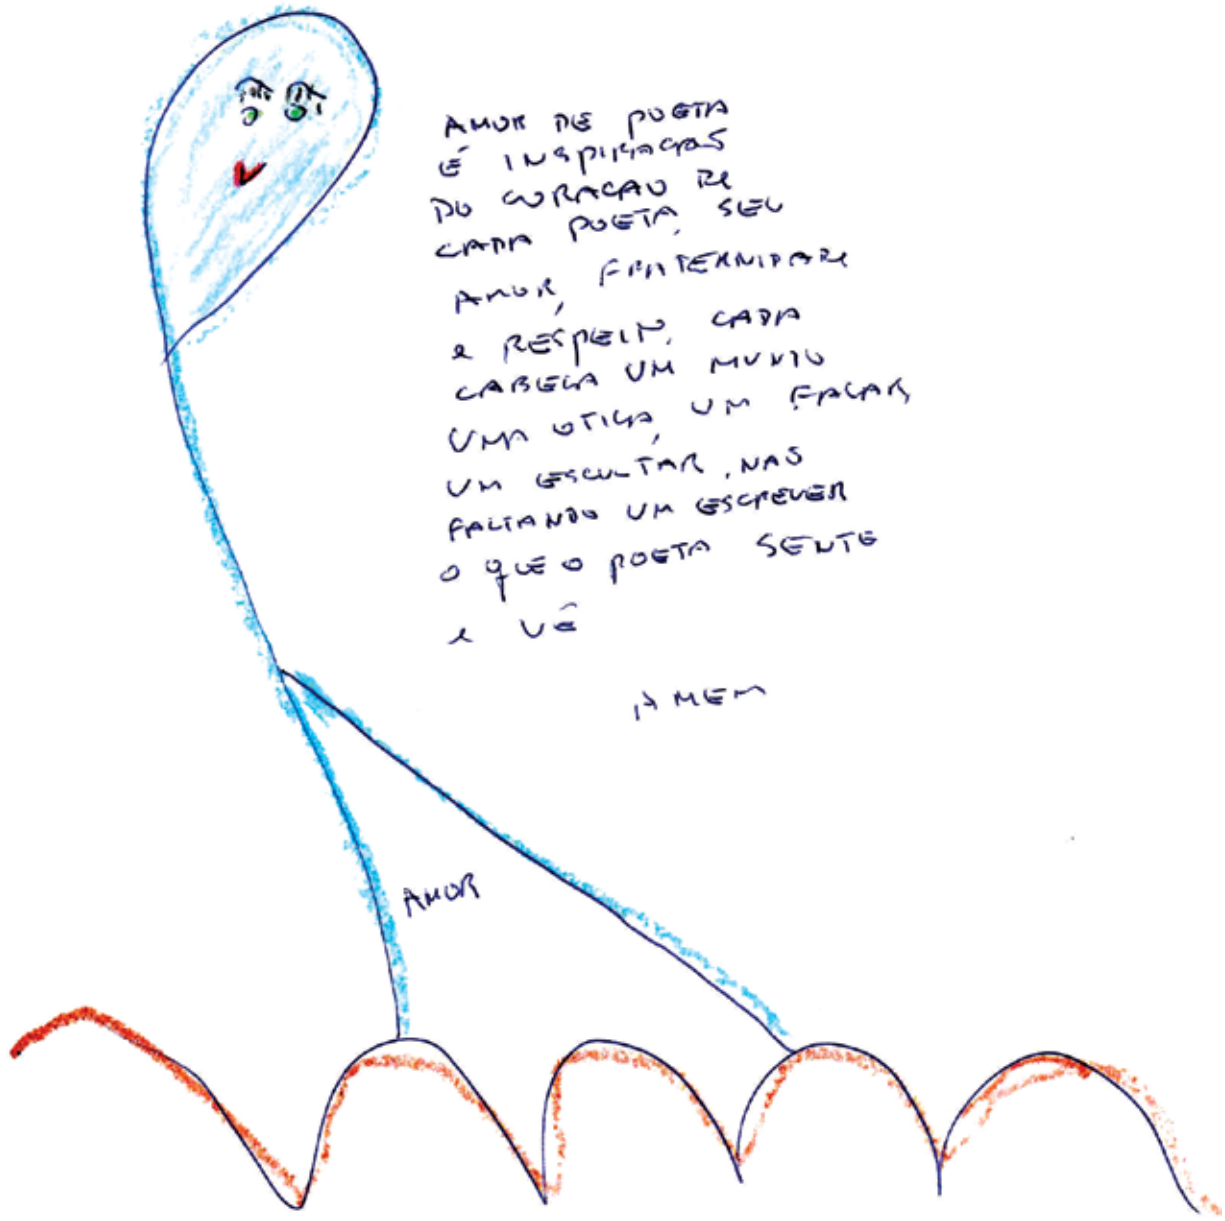 AMOR DE POETA
É INSPIRAÇÃO
DO CORAÇÃO DE
CADA POETA, SEU
AMOR, FRATERNIDADE
E RESPEITO, CADA
CABEÇA UM MUNDO
UMA OTICA, UM FALAR,
UM ESCULTAR, NAO
FALTANDO UM ESCREVER
O QUE O POETA SENTE
E VÊ
AMEM
AMOR